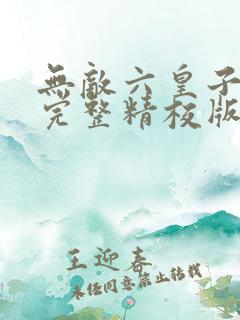 無敵六皇子
完整精校版
王迎春
未经同意禁止转载